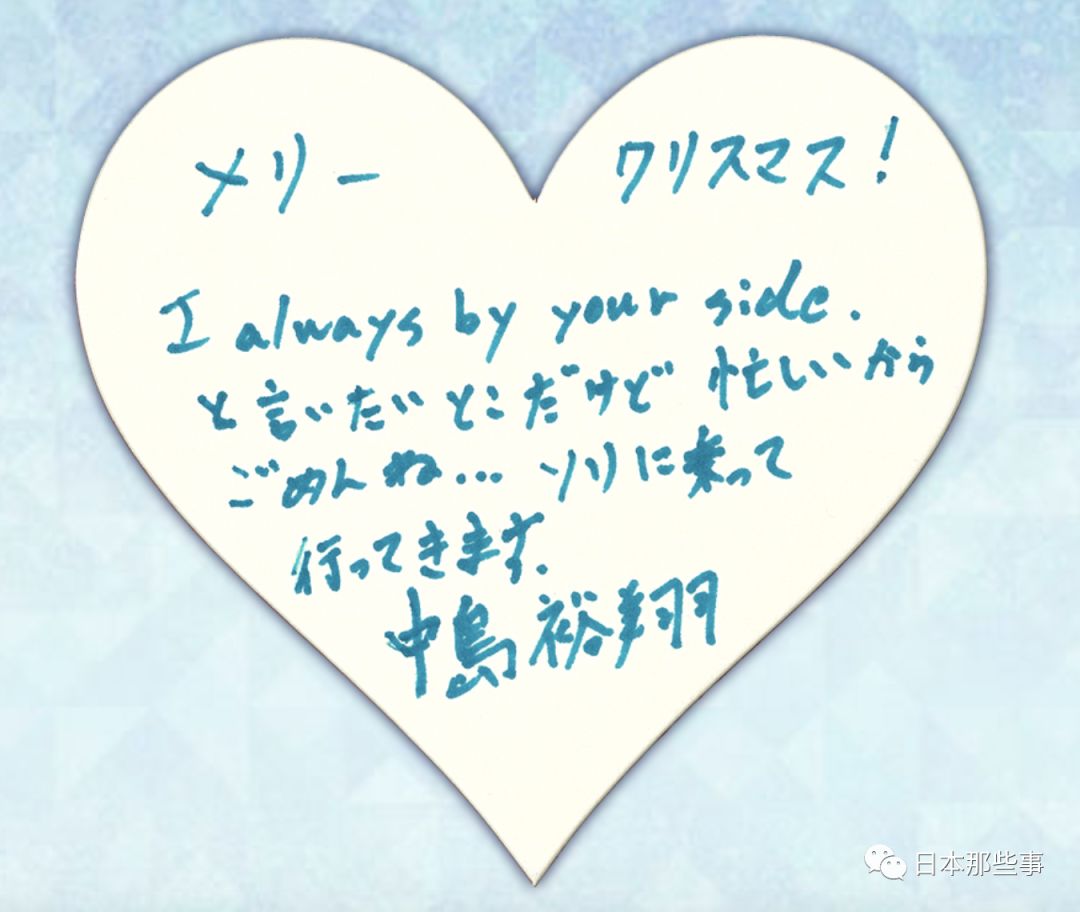 メリー クリスマス!
I always by your side.
と言いたいとこだけど 忙しいから
ごめんね... ソリに乗って
行ってきます.
中島裕翔
日本那些事